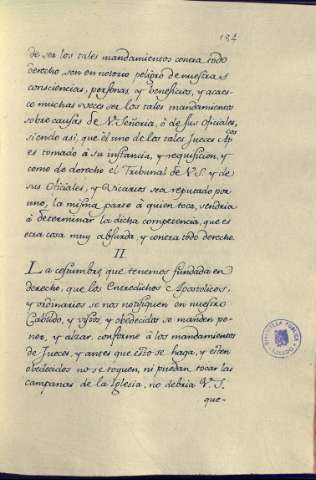 184
de ser los tales mandamientos contra todo
derecho, son en notorio peligro de nuestras
consciencias, personas, y beneficios, y acaes-
co muchas vveces ser los tales mandamientos
sobre causas de V. Señoria, ò de sus Oficiales,
siendo asi, que èl uno de los tales Jueces Ap.cos
es tomado à su instancia, y requisicion, y
como de derecho el Tribunal de V. S. y de
sus Oficiales, y Vicarios sea reputado por
uno, la misma parte à quien toca, vendria
à determinar la dicha competencia, que es
otra cosa muy absurda, y contra todo derecho.
II
La costumbre, que tenemos fundada en
derecho, que los Entredichos Apostolicos,
y ordinarios se nos notifiquen en nuestro
Cabildo, y vistos, y obedecidos se manden po-
ner, y alzar, conforme à los mandamientos
de Jueces, y antes que esto se haga, y estèn
obedecidos no se toquen, ni puedan tocar las
campanas de la Iglesia, no debria V. S.
que-
BIBLIOTECA PUBLICA
TOLEDO